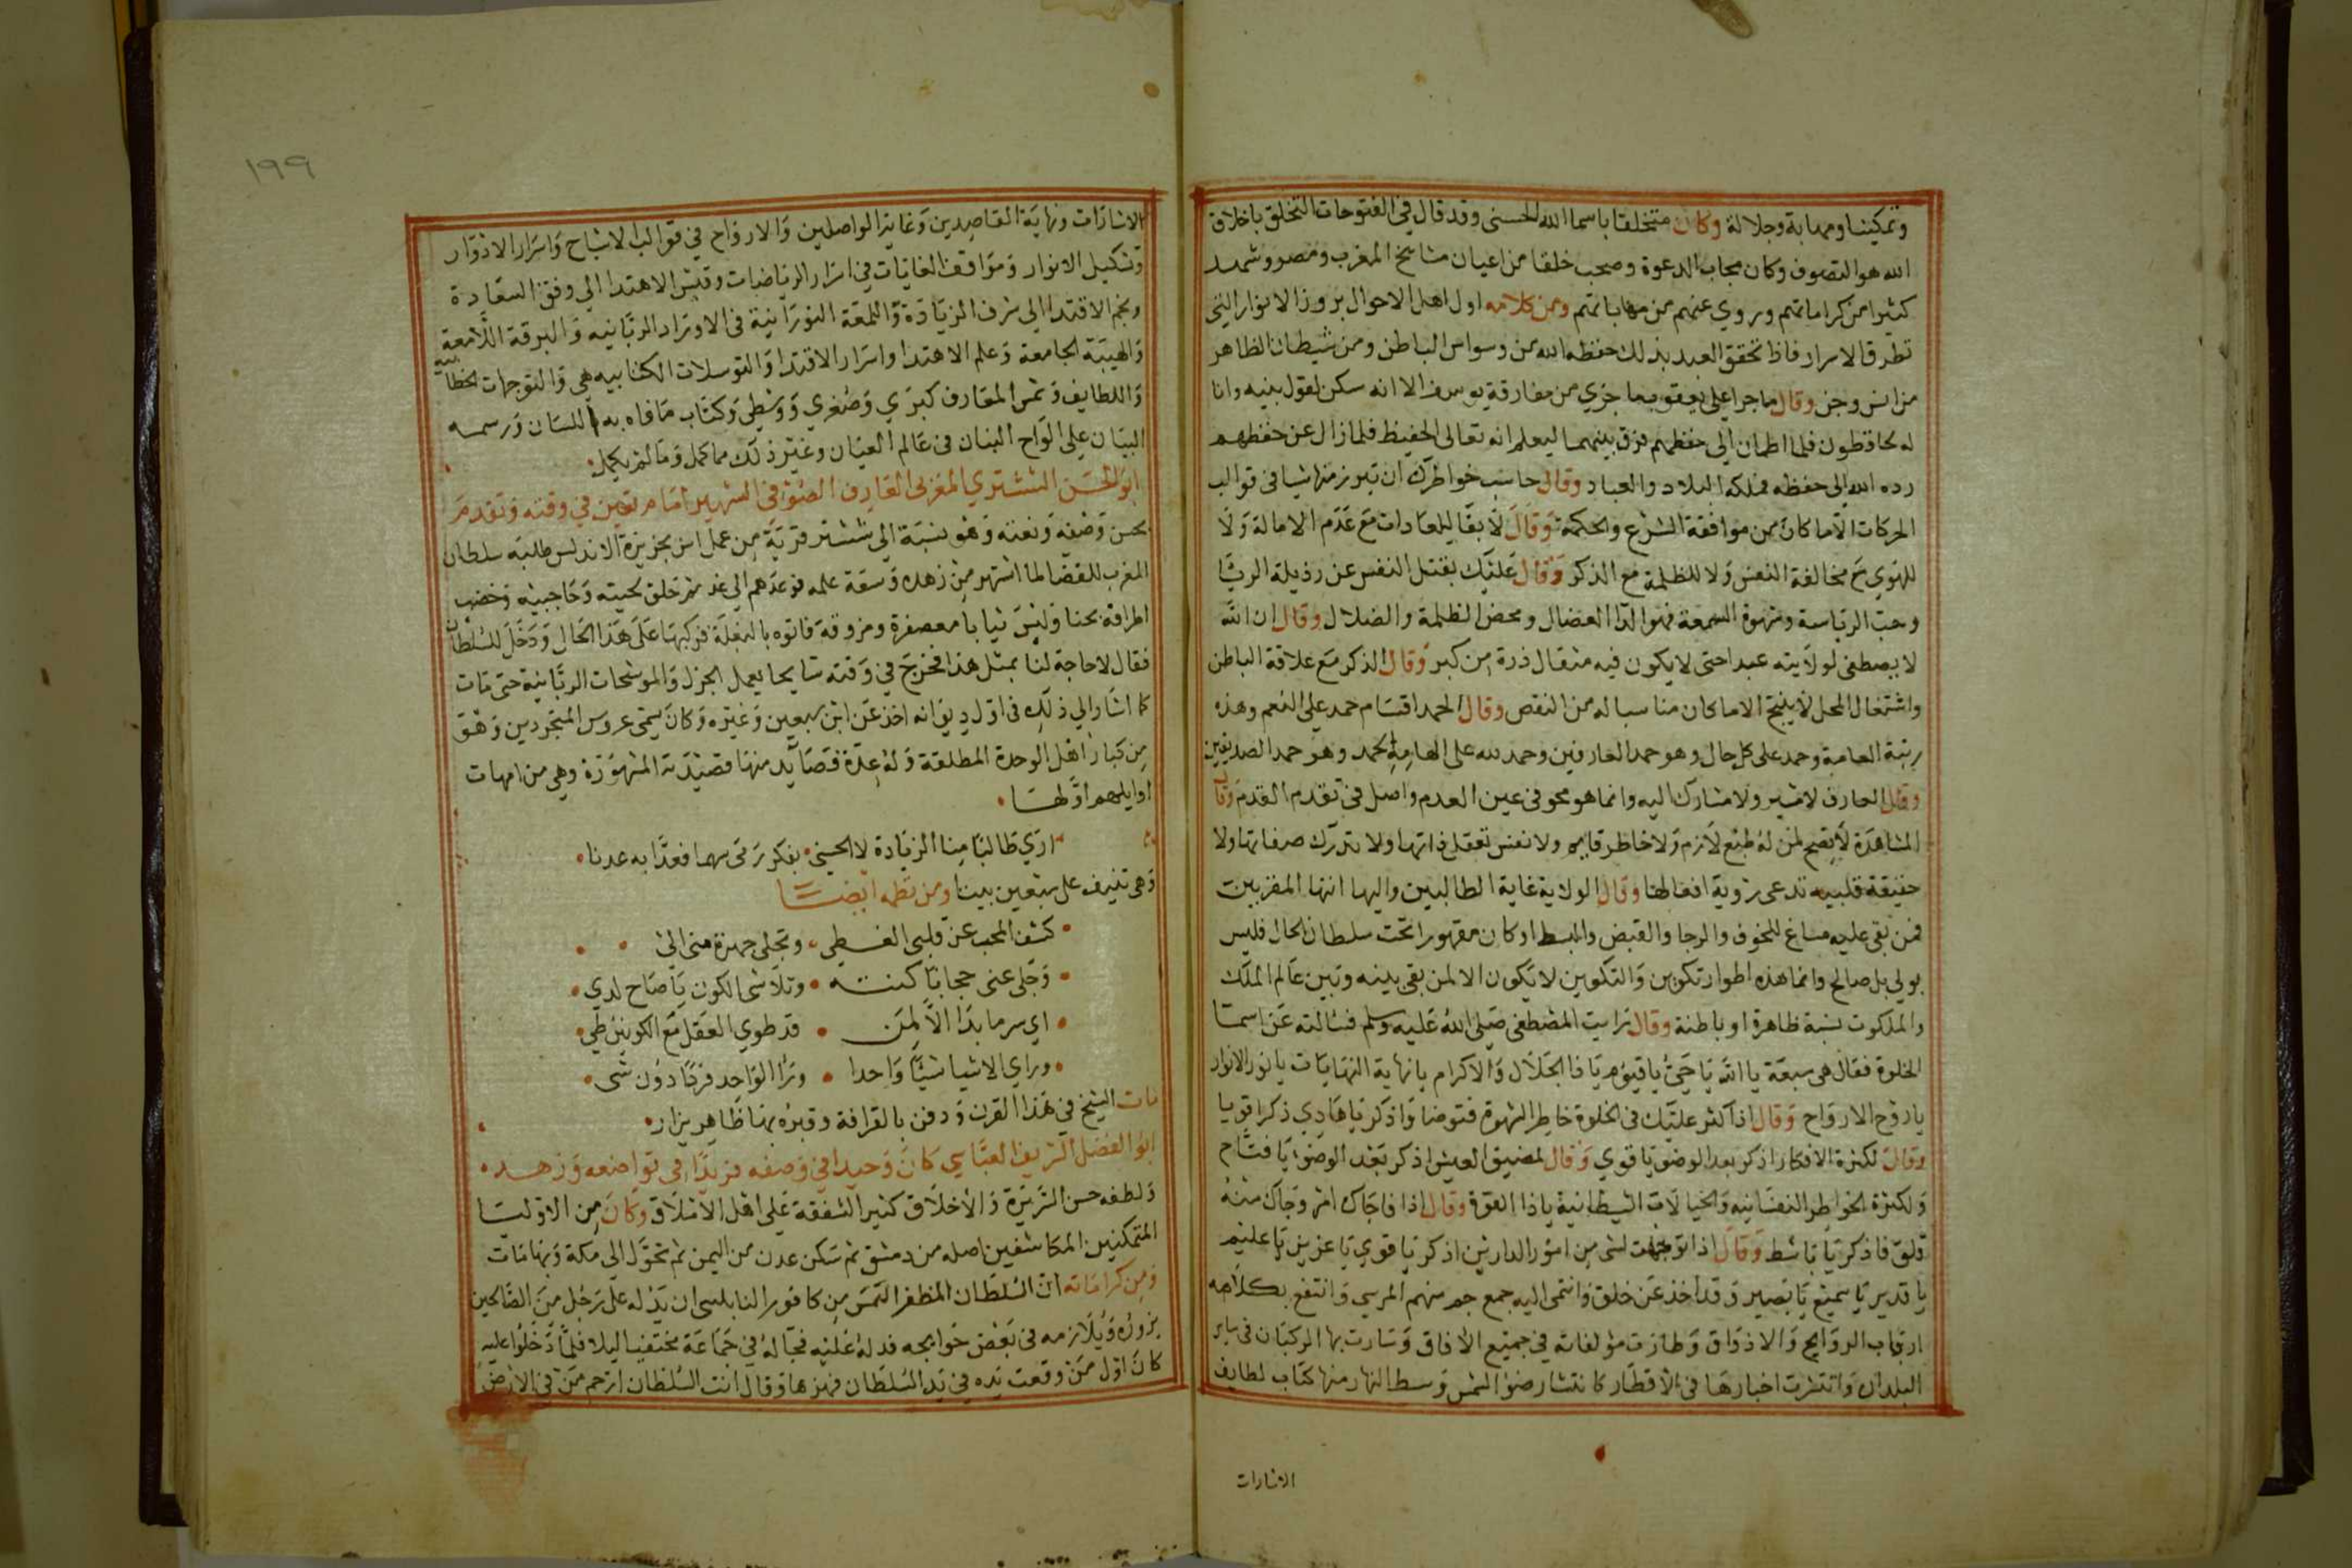 وتمكينا ومهابة وجلالة وكان متخلقا باسما الله الحسنى وقد قال في الفتوحات التخلق باخلاق
الله هو التصوف وكان مجاب الدعوة وصحب خلقا من اعيان مشايخ المغرب ومصر وشهد
كثيرا من كراماتهم وروي عنهم من مهاباتهم ومن كلامه اول اهل الاحوال بروز الانوار التي
تطرق الاسرار فاذا تحقق العبد بذلك حفظه الله من وسواس الباطن ومن شيطان الظاهر
من انس وجن وقال ما جرا على يعقوب ما جري من مفارقة يوسف الا انه سكن لقول بنيه وانا
له لحافظون فلما اطمان الي حفظهم فرق بينهما ليعلم انه تعالى الحفيظ فلما زال عن حفظهم
رده الله الى حفظه فملكه البلاد والعباد وقال حاسب خواطرك ان تبرز منها شيا في قوالب
الحركات الا ما كان من موافقة الشرع والحكمة وقال لا بقا للعادات مع عدم الامالة ولا
للهوي مع مخالفة النفس ولا للظلمة مع الذكر وقال عليك بقتل النفس عن رذيلة الريا
وحب الرياسة وشهوة السمعة فهو الدا العضال ومحض الظلمة والضلال وقال ان الله
لا يصطفى لولايته عبدا حتى لا يكون فيه مثقال ذرة من كبر وقال الذكر مع علاقة الباطن
واشتغال المحل لا ينتج الا ما كان مناسبا له من النقص وقال الحمد اقسام حمد على النعم وهذه
رتبة العامة وحمد على كل حال وهو حمد العارفين وحمد لله على الهامه الحمد وهو حمد الصديقين
وقال العارف لا مشير ولا مشارك اليه وانما هو محو في عين العدم واصل في تقدم القدم وقال
المشاهدة لا تصح لمن له طبع لازم ولا خاطر قايم ولا نفس تعقل ذاتها ولا تدرك صفاتها ولا
حقيقة قلبيه تدعى رؤية افعالها وقال الولاية غاية الطالبين واليها انتها المقربين
فمن بقى عليه مساغ للخوف والرجا والقبض والبسط او كان مقهورا تحت سلطان الحال فليس
بولي بل صالح وانما هذه اطوار تكوين والتكوين لا يكون الا لمن بقى بينه وبين عالم الملك
والملكوت نسبة ظاهرة او باطنة وقال رايت المصطفى صلى الله عليه وسلم فسالته عن اسما
الخلوة فقال هى سبعة يا الله يا حي يا قيوم يا ذا الجلال والاكرام يا نهاية النهايات يا نور الانوار
يا روح الارواح وقال اذا كثر عليك في الخلوة خاطر الشهوة فتوضا واذكر يا هادي ذكرا قويا
وقال لكثرة الافكار اذكر بعد الوضو يا قوي وقال لمضيق العيش اذكر بعد الوضو يا فتاح
ولكثرة الخواطر النفسانيه والخيالات الشيطانية يا ذا القوة وقال اذا فاجاك امر وجاك منه
قلق فاذكر يا باسط وقال اذا توجهت لشي من امور الدارين اذكر يا قوي يا عزيز يا عليم
يا قدير يا سميع يا بصير وقد اخذ عن خلق وانتمى اليه جمع جم منهم المرسي وانتفع بكلامه
ارباب الروايح والاذواق وطارت مؤلفاته في جميع الافاق وسارت بها الركبان في ساير
البلدان وانتشرت اخبارها في الاقطار كانتشار ضو الشمس وسط النهار منها كتاب لطايف
الاشارات
١٩٩
الاشارات ونهاية القاصدين وغاية الواصلين والارواح في قوالب الاشباح واسرار الادوار
وتشكيل الانوار ومواقف الغايات في اسرار الرياضيات وقبس الاهتدا الي وفق السعادة
ونجم الاقتدا الي شرف الزيادة واللمعة النورانية في الاوراد الربانيه والبرقة اللامعة
والهيبة الجامعة وعلم الاهتدا واسرار الاقتدا والتوسلات الكتابيه هي والتوجهات الخطابية
واللطايف وشمس المعارف كبرى وصغري ووسطي وكتاب ما فاه به اللسان ورسمه
البيان على الواح البنان في عالم العيان وغير ذلك مما كمل وما لم يكمل
ابو الحسن الششتري المغربى العارف الصوفي الشهير امام تعين في وقته وتقدم
بحسن وصفه ونعته وهو نسبة الي ششتر قرية من عمل اش بجزيرة الاندلس طلبه سلطان
المغرب للقضا لما اشتهر من زهده وسعة علمه فوعدهم الي غد ثم حلق لحيته وحاجبيه وخضب
اطرافه بحنا ولبس ثيابا معصفرة ومزوقة فاتوه بالبغلة فركبها على هذا الحال ودخل للسلطان
فقال لا حاجة لنا بمثل هذا فخرج في وقته سايحا يعمل الجزل والموشحات الربانية حتى مات
كما اشار الي ذلك في اول ديوانه اخذ عن ابن سبعين وغيره وكان يسمى عروس المتجردين وهو
من كبار اهل الوحدة المطلقة وله عدة قصايد منها قصيدته المشهورة وهي من امهات
اوايلهم اولها
اري طالبا منا الزيادة لا الحسني بفكر رمى سهما فعدا به عدنا
وهى تنيف على سبعين بيتا ومن نظمه ايضا
كشف المحب عن قلبى الغطي وتجلى جهرة منى الي
وجلى عنى حجابا كنته وتلاشى الكون يا صاح لدي
اي سر ما بدا الا لمن قد طوي العقل مع الكونين طي
وراي الاشيا شيا واحدا ورا الواحد فردا دون شى
مات الشيخ في هذا القرن ودفن بالقرافة وقبره بها ظاهر يزار
ابو الفضل الشريف العباسي كان وحيدا في وصفه فريدا في تواضعه وزهده
ولطفه حسن السيرة والاخلاق كثير الشفقة على اهل الاملاق وكان من الاوليا
المتمكنين المكاشفين اصله من دمشق ثم سكن عدن من اليمن ثم تحول الي مكة وبها مات
ومن كراماته ان السلطان المظفر التمس من كافور النابلسى ان يدله على رجل من الصالحين
يزوره ويلازمه في بعض حوايجه فدله عليه فجا له في جماعة مختفيا ليلا فلما دخلوا عليه
كان اول من وقعت يده في يد السلطان فهزها وقال انت السلطان ارحم من في الارض